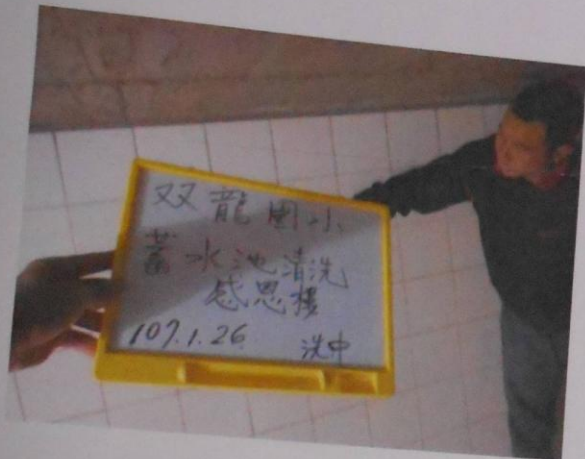 双龍國小
蓄水池清洗
感恩樓
107.1.26 洗中